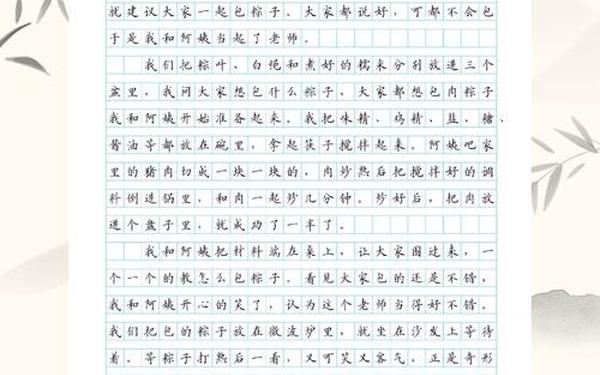 就建议大家一起包粽子。大家都说好，可都不会包
子是我和阿姨当起了老师。
我们把粽叶、白绳和煮好的糯米分别放进三个
盆里，我问大家想包什么粽子，大家都想包肉粽子
我和阿姨开始准备起来。我把味精、鸡精、盐、糖、
酱油等都放在碗里，拿起筷子搅拌起来。阿姨吧家
里的猪肉切成一块一块的，肉炒熟后把搅拌好的调
料倒进锅里，和肉一起炒几分钟。炒好后，把肉放
进个盘子里，就成功了一半了。
我和阿姨把材料端在桌上，让大家围过来，一
个一个的教怎么包粽子。看见大家包的还是不错，
我和阿姨开心的笑了，认为这个老师当得好不错。
我们把包的粽子放在微波炉里，就坐在沙发上等待
着。等粽子打热后一看，又可笑又客气，正是奇形